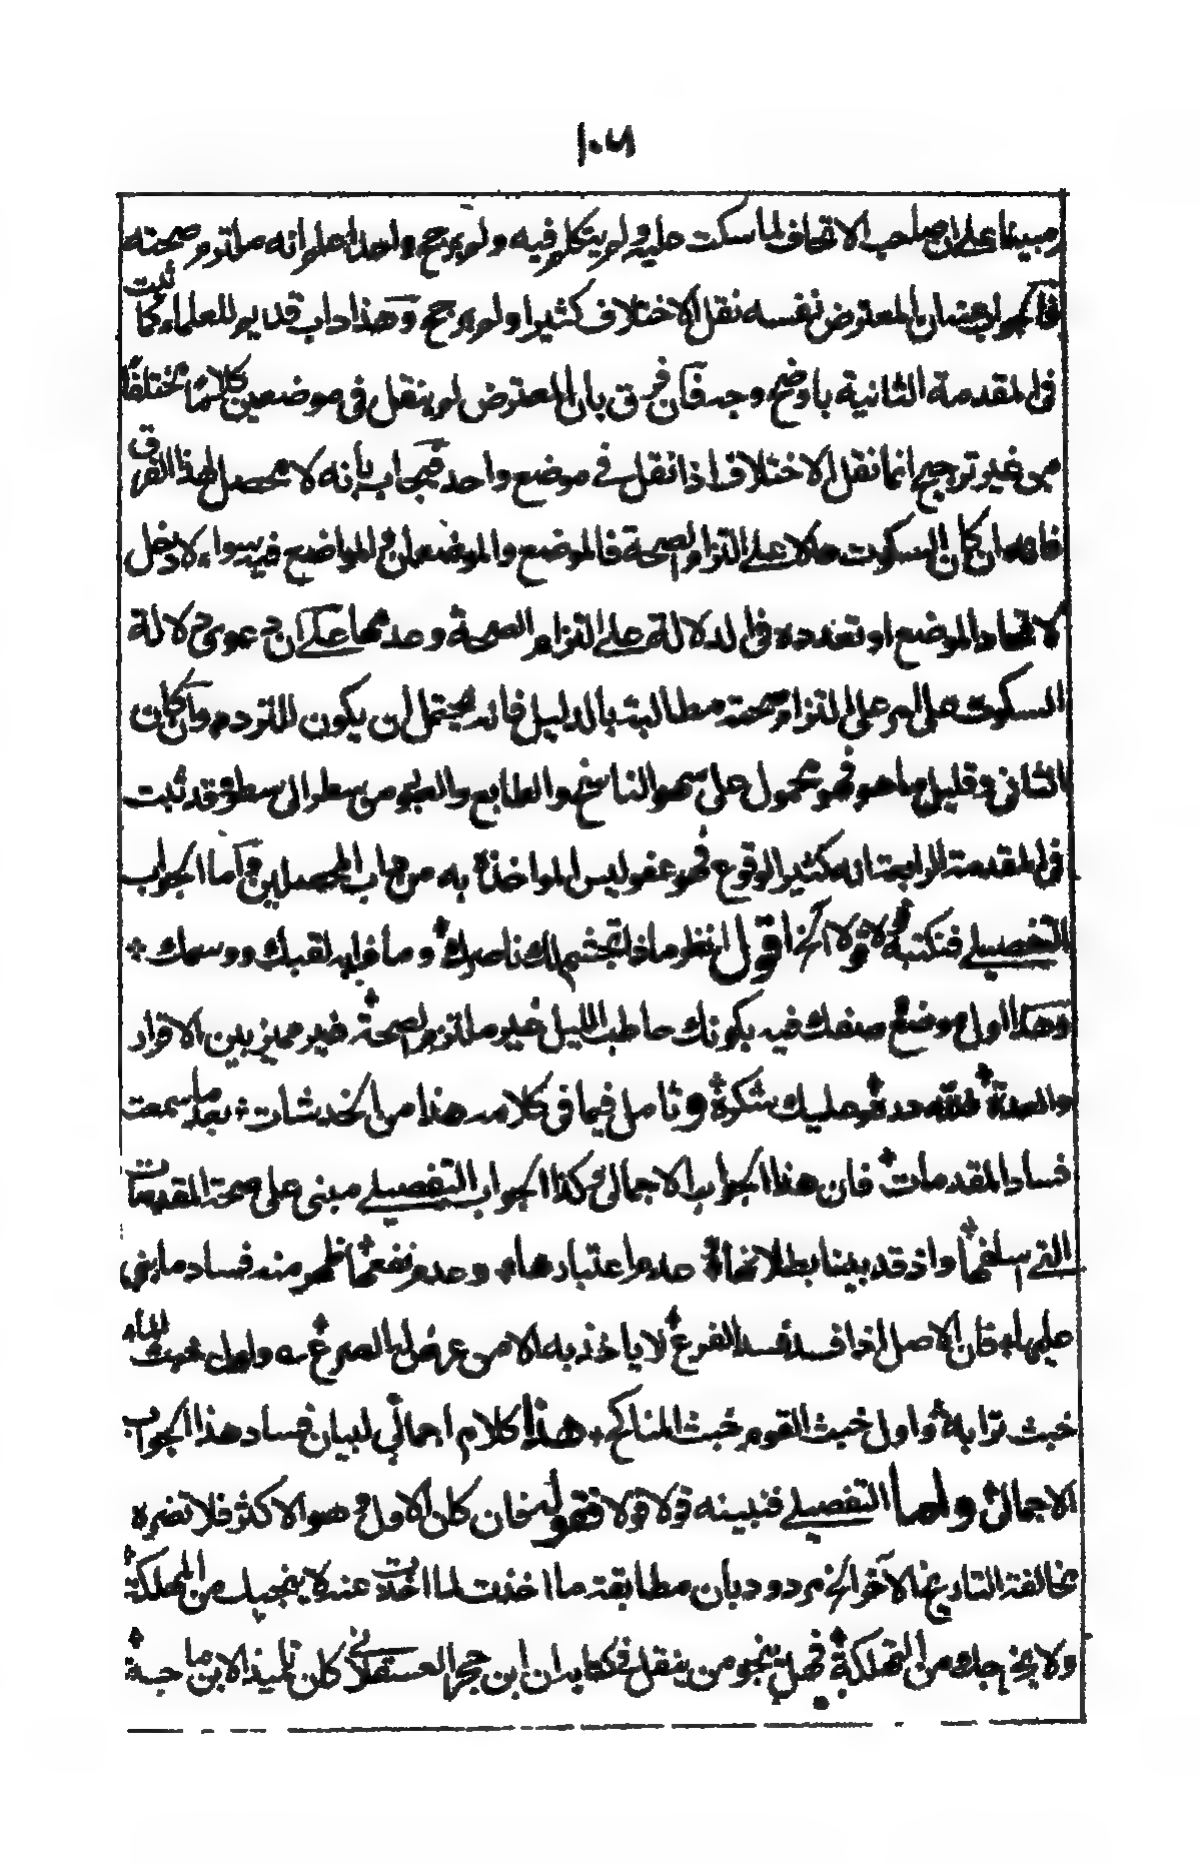 ١٠٦
ومبينا على ان صاحب الاتحاف لما سكت عليه ولم يتكلم فيه ولم يرجح واحدا علم انه ملتزم صحته
فالجواب عنه ان المعترض نفسه نقل الاختلاف كثيرا ولم يرجح وهذا داب قديم للعلماء كما ثبت
فى المقدمة الثانية باوضح وجه فان فرق بان المعترض لم ينقل فى موضعين كلاما مختلفا
من غير ترجيح انما نقل الاختلاف اذا نقل فى موضع واحد فيجاب بانه لا يحصل لهذا الفرق
فانه ان كان السكوت دالا على التزام الصحة فالموضع والموضعان والمواضع فيه سواء لا دخل
لاتحاد الموضع او تعدده فى الدلالة على التزام الصحة وعدمها على ان دعوى دلالة
السكوت على امر على التزام صحته مطالبة بالدليل فانه يحتمل ان يكون للتردد وان كان
الثانى وقليل ما هو فهو محمول على سهو الناسخ والطابع والعبور من سطر الى سطر وقد ثبت
فى المقدمة الرابعة انه كثير الوقوع فهو عفو ليس المواخذة به من داب المحصلين واما الجواب
التفصيلى فنكتبه قولا قولا الخ اقول انظر ماذا تجشم لك ناصرك وما ذا به لقبك ووسمك
وهكذا اول موضع صنفك فيه بكونك حاطب الليل غير ملتزم الصحة غير مميز بين الافراد
والعدة فلله دره عليك شكره وتامل فيما فى كلامه هذا من الخدشات بعد ما سمعت
فساد المقدمات فان هذا الجواب الاجمالى وكذا الجواب التفصيلى مبنى على صحة المقدمات
التى اسلفها واذ قد بينا بطلانها وعدم اعتبارها وعدم نفعها ظهر منه فساد ما بنى
عليها فان الاصل اذا فسد فسد الفرع لا ياخذ به الا من عرض له الصرع واول خبث الماء
خبث ترابه واول خبث القوم خبث المناكح هذا كلام اجمالى لبيان فساد هذا الجواب
الاجمالى واما التفصيلى فنبينه قولا قولا فقوله فان كان الاول وهو الاكثر فلا تضره
مخالفة التاريخ الآخر الخ مردود بان مطابقة ما اخذت لما اخذت عنه لا ينجيك من المهلكة
ولا يخرجك من التهلكة فهل ينجو من ينقل فى كتابه ان ابن حجر العسقلانى كان تلميذ الابن ماجة